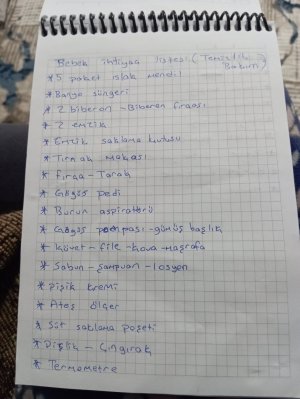 Bebek ihtiyaç listesi (Temizlik ve Bakım)
* 5 paket ıslak mendil
* Banyo süngeri
* 2 biberon - Biberon fırçası
* 2 emzik
* Emzik saklama kutusu
* Tırnak makası
* Fırça - Tarak
* Göğüs Pedi
* Burun aspiratörü
* Göğüs pompası - gümüş başlık
* Küvet - file - kova - maşrafa
* Sabun - şampuan - losyon
* Pişik kremi
* Ateş ölçer
* Süt saklama poşeti
* Dişlik - Çıngırak
* Termometre